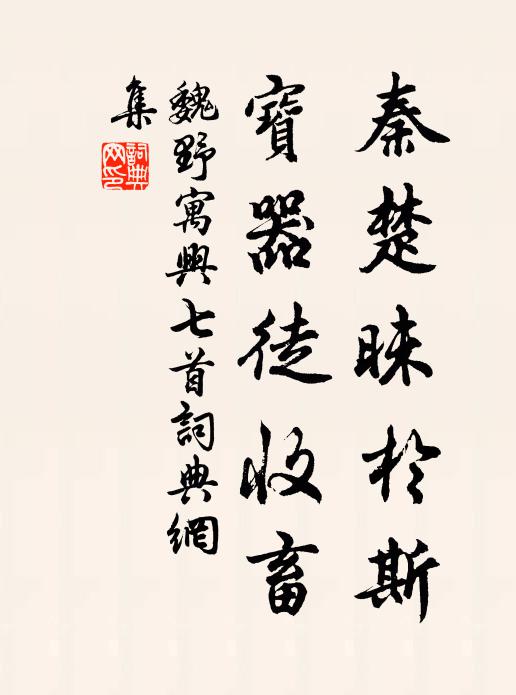 秦楚昧於斯
寶器徒收畜
魏野寓興七首詞典網
集
詞典網印